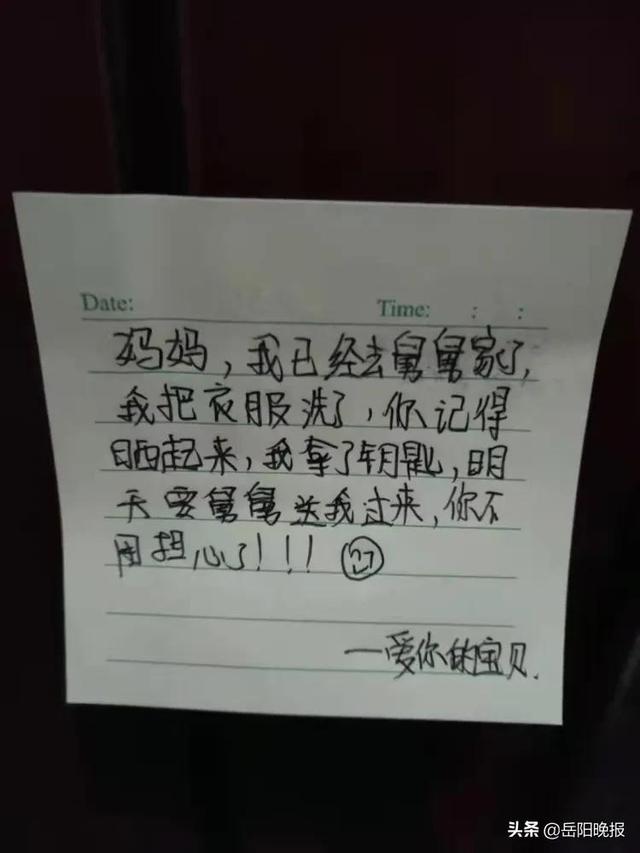 Date: Time: : :
妈妈，我已经去舅舅家了，
我把衣服洗了，你记得
晒起来，我拿了钥匙，明
天要舅舅送我过来，你不
用担心了！！！
—爱你的宝贝.
头条 @岳阳晚报